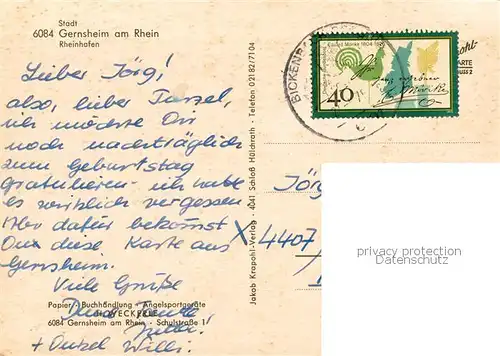 Stadt
6084 Gernsheim am Rhein
Rheinhafen
Lieber Jörg!
also, lieber Tarzel,
ich möchte Dir
noch nachträglich
zum Geburtstag
gratulieren – ich habe
es wirklich vergessen
Aber dafür bekommst
Du diese Karte aus
Gernsheim.
Viele Grüße
Papier - Buchhandlung - Angelsportgeräte
6084 Gernsheim am Rhein - Schulstraße 1
+ Onkel Willi.
Jakob Krapohl-Verlag · 4041 Schloß Hülchrath · Telefon 02182/7104
BICKENBACH
Eduard Mörike 1804-1875
40
Jörg
x 4407
privacy protection